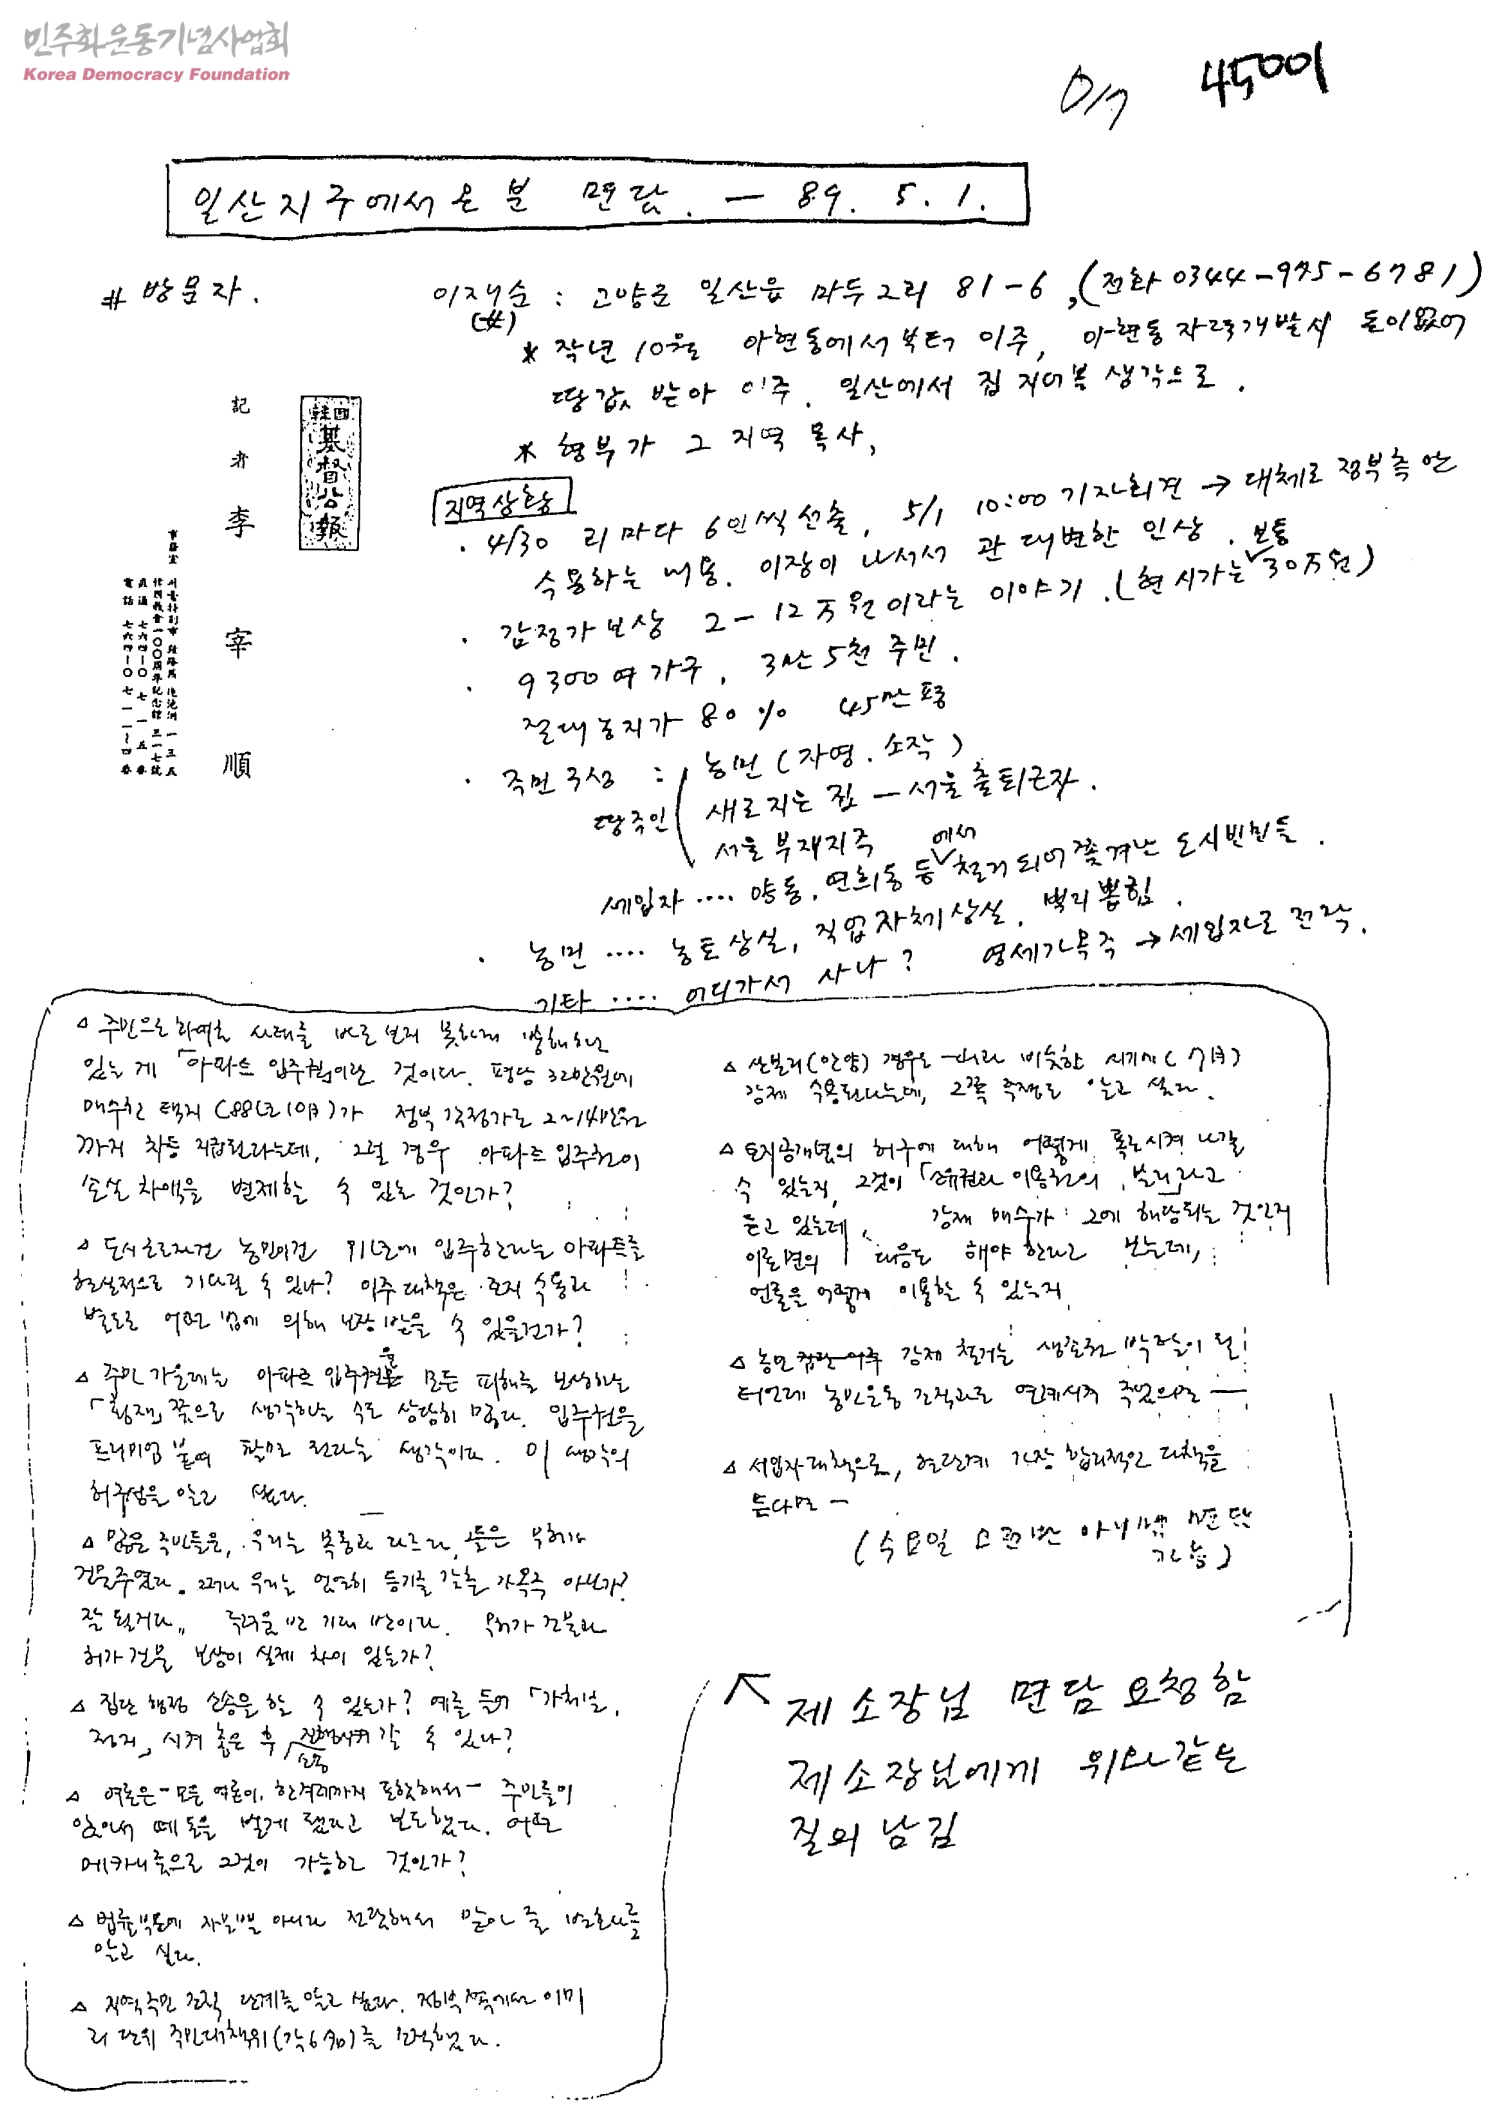 민주화운동기념사업회
Korea Democracy Foundation
45001
일산지구에서 온 분 면담. — 89. 5. 1.
# 방문자.
이재순 : 고양군 일산읍 마두2리 81-6, (전화 0344-975-6781)
(女)
* 작년 10월 아현동에서부터 이주, 아현동 자력개발시 돈이없어
땅값 받아 이주. 일산에서 집 지어볼 생각으로.
* 형부가 그 지역 목사,
記者 李宰順
韓國
基督公報
事務室 서울特別市 鍾路區 蓮池洞 一三五
韓國敎會一〇〇周年記念館 三一七號
直通 七六四-〇七一五番
電話 七六四-〇七一一~四番
지역상황
· 4/30 리마다 6인씩 선출, 5/1 10:00 기자회견 → 대체로 정부측 안
수용하는 내용. 이장이 나서서 관 대변한 인상.
· 감정가 보상 2-12万원이라는 이야기. (현시가는 보통 30万원)
· 9300여 가구, 3만5천 주민.
절대농지가 80% 45만평
· 주민구성 : 농민 (자영. 소작)
땅주인 새로지은 집 — 서울 출퇴근자.
서울 부재지주
세입자 .... 양동, 연희동 등에서 철거되어 쫓겨난 도시빈민들.
· 농민 .... 농토상실, 직업자체상실. 뿌리뽑힘.
기타 .... 어디가서 사나? 영세가옥주 → 세입자로 전락.
△ 주민으로 하여금 사태를 바로 보지 못하게 방해하고
있는 게 「아파트 입주권」이란 것이다. 평당 32만원에
매수한 택지 (88년 10月)가 정부 감정가로 2~14만원
까지 차등 지급된다는데, 그럴 경우 아파트 입주권이
손실 차액을 변제할 수 있는 것인가?
△ 도시근로자건 농민이건 91년에 입주한다는 아파트를
현실적으로 기다릴 수 있나? 이주대책은 토지 수용과
별도로 어떤 법에 의해 보장받을 수 있을건가?
△ 주민 가운데는 아파트 입주권을 모든 피해를 보상하는
「횡재」쯤으로 생각하는 수도 상당히 많다. 입주권을
프리미엄 붙여 팔면 된다는 생각이다. 이 생각의
허구성을 알고 싶다.
△ 많은 주민들은, 우리는 목동과 다르다, 그들은 무허가
건물주였다. 그러나 우리는 엄연히 등기를 갖춘 가옥주 아닌가?
잘 될거다" 두려움 반 기대 반이다. 무허가 건물과
허가건물 보상이 실제 차이 있는가?
△ 집단 행정 소송을 할 수 있는가? 예를 들어 「가처분,
정지」 시켜 놓은 후 진행시켜 갈 수 있나?
소송
△ 여론은 - 모든 여론이, 한겨레까지 포함해서 - 주민들이
앉아서 떼돈을 벌게 됐다고 보도했다. 어떤
메카니즘으로 그것이 가능한 것인가?
△ 법률부문에 자문뿐 아니라 전담해서 맡아 줄 변호사를
알고 싶다.
△ 지역주민 조직 단계를 알고 싶다. 정부 쪽에선 이미
리 단위 주민대책위(각6名)를 조직했다.
△ 산본리(안양) 경우도 비슷한 시기에 (7月)
강제 수용된다는데, 그쪽 주장도 알고 싶다.
△ 토지공개념의 허구에 대해 어떻게 폭로시켜 나갈
수 있는지, 그것이 「소유권과 이용권의 분리」라고
듣고 있는데, 강제 매수가 그에 해당되는 것인지
이론면의 대응도 해야 한다고 보는데,
언론을 어떻게 이용할 수 있는지,
△ 농민 강제 철거는 생존권 박탈이 될
터인데 농민운동 조직과도 연계시켜 주었으면 —
△ 세입자대책으로, 현단계 가장 합리적인 대책을
듣다면 —
(수요일 오전반 아니면 면담
가능)
↖ 제소장님 면담 요청함
제소장님에게 위와 같은
질의 남김